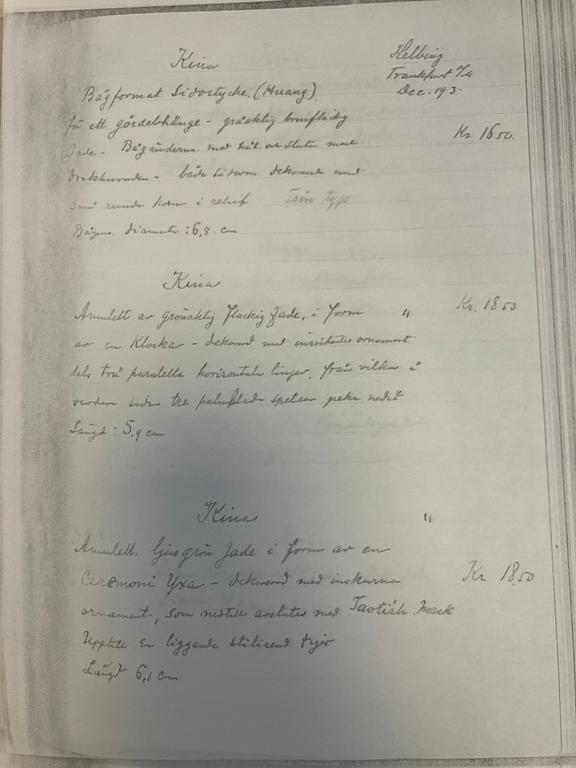 Kina
Helbing
Frankfurt a/M
Dec. 193.
Bågformat Sidostycke. (Huang).
för ett gördelhänge - gråaktig brunfläckig
Jade - Bågändarna med hål avslutas med
Kr. 16 50.
drakhuvuden - båda sidorna dekorerade med
små runda korn i relief Tsin typ
Bågens diameter : 6,8 cm
Kina
Amulett av grönaktig flackig Jade, i form "
Kr. 18.50
av en Klocka - dekorerad med inristade ornament
dels två paralella horizontala linjer, från vilka å
vardera sidan tre palmblad spetsar peka nedåt
Längd : 5,9 cm
Kina
"
Amulett. ljusgrön Jade i form av en
Ceremoni Yxa - dekorerad med inskurna
Kr 18.50
ornament., som nedtill avslutas med Taotieh Mask
Upptill en liggande stiliserad tjur
Längd 6,1 cm